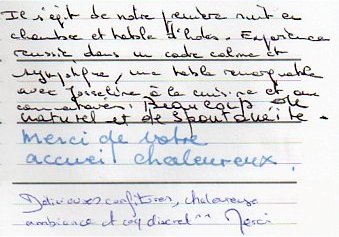 Il s'agit de notre première nuit en
chambre et table d'hôtes. Expérience
réussie dans un cadre calme et
sympathique, une table remarquable
avec Josseline à la cuisine et aux
commentaires. Beaucoup de
naturel et de spontanéité.
Merci de votre
accueil chaleureux.
Délicieuses confitures, chaleureuse
ambiance et coq discret ^^ Merci